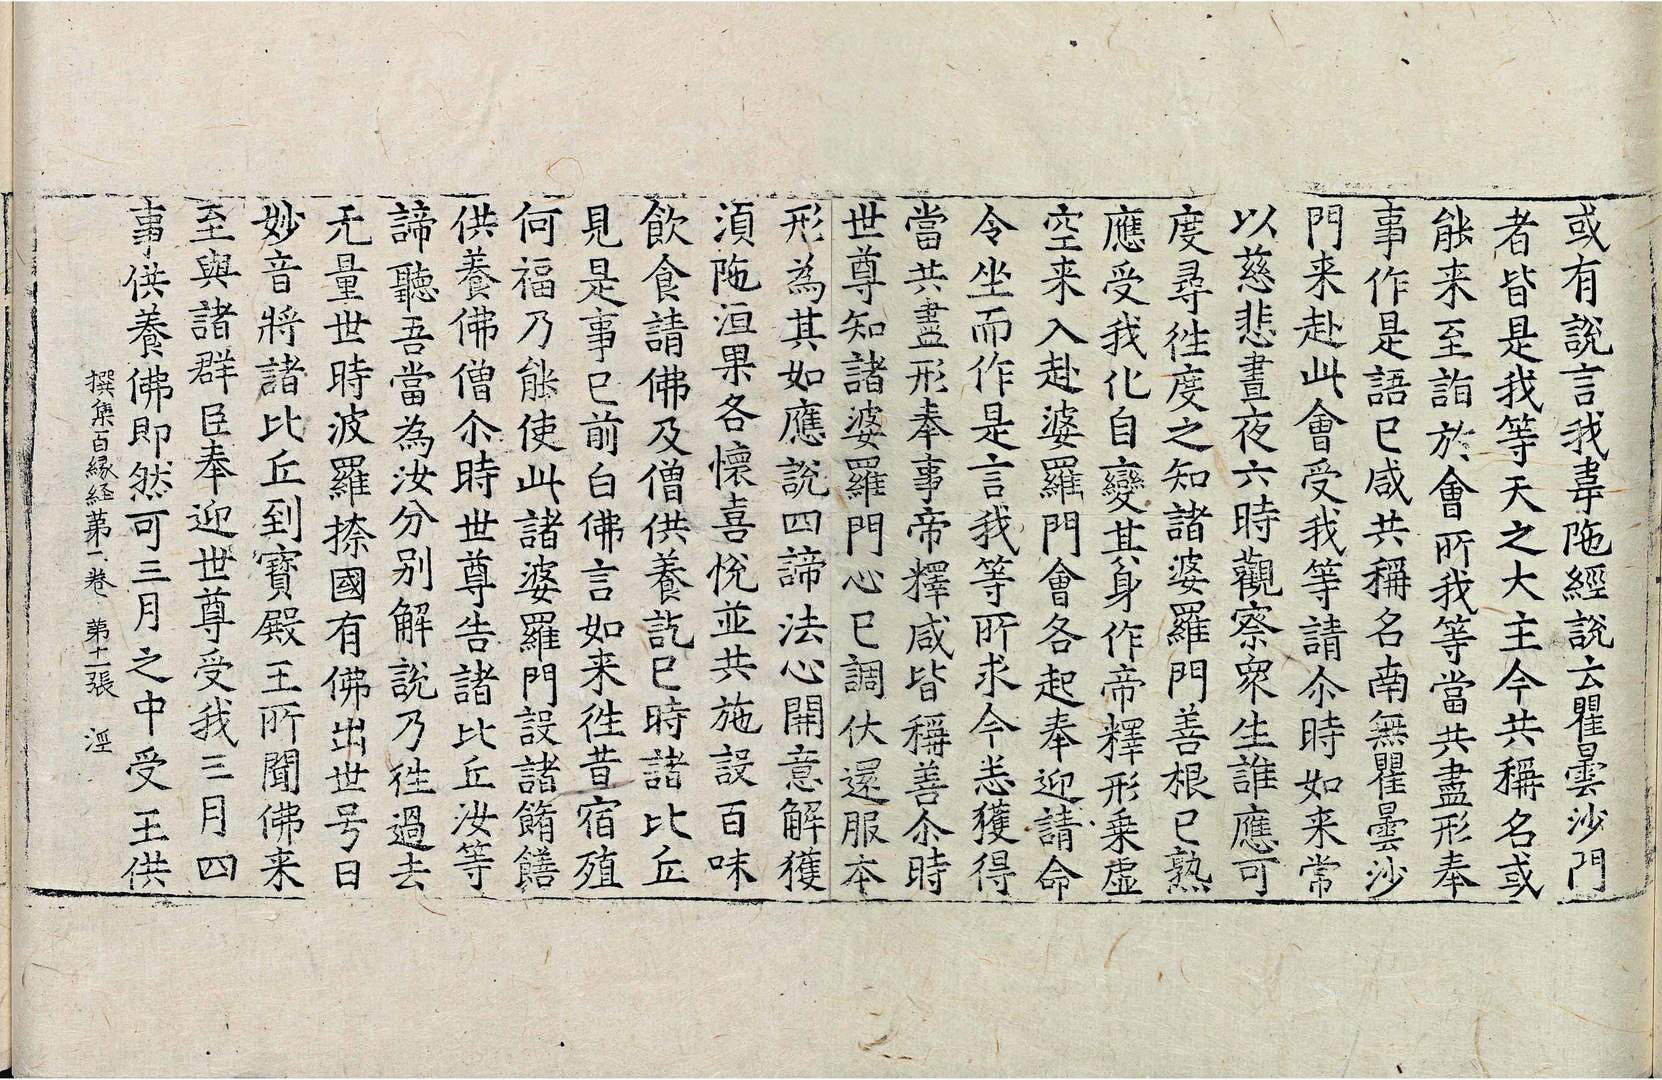 或有說言我韋陁經說云瞿曇沙門
者皆是我等天之大主今共稱名或
能来至詣於會所我等當共盡形奉
事作是語已咸共稱名南無瞿曇沙
門来赴此會受我等請尒時如来常
以慈悲晝夜六時觀察衆生誰應可
度尋徃度之知諸婆羅門善根已熟
應受我化自變其身作帝釋形乗虛
空来入赴婆羅門會各起奉迎請命
令坐而作是言我等所求今㤙獲得
當共盡形奉事帝釋咸皆稱善尒時
世尊知諸婆羅門心已調伏還服本
形為其如應說四諦法心開意解獲
湏陁洹果各懷喜悅並共施設百味
飲食請佛及僧供養訖已時諸比丘
見是事已前白佛言如来徃昔宿殖
何福乃能使此諸婆羅門設諸餚饍
供養佛僧尒時世尊告諸比丘汝等
諦聽吾當為汝分別解說乃徃過去
无量世時波羅㮈國有佛出世号曰
妙音將諸比丘到寶殿王所聞佛来
至與諸群臣奉迎世尊受我三月四
事供養佛即然可三月之中受王供
撰集百緣経苐二卷 第十二張 涇